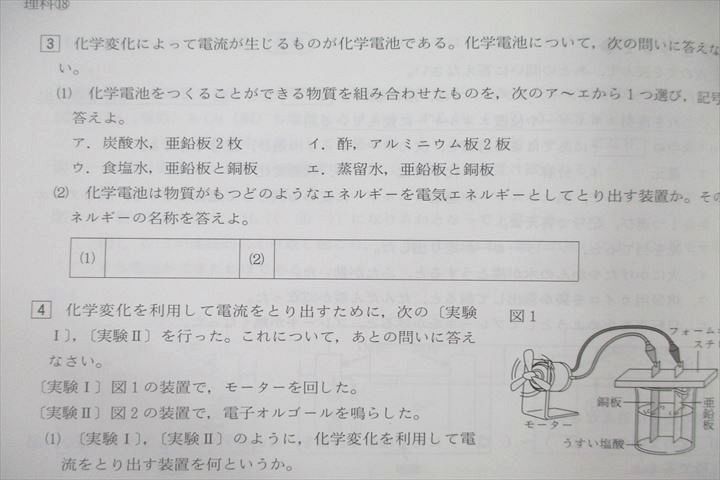 理科⑱
3 化学変化によって電流が生じるものが化学電池である。化学電池について，次の問いに答えな
い。
(1) 化学電池をつくることができる物質を組み合わせたものを，次のア～エから1つ選び，記号
答えよ。
ア．炭酸水，亜鉛板2枚 イ．酢，アルミニウム板2板
ウ．食塩水，亜鉛板と銅板 エ．蒸留水，亜鉛板と銅板
(2) 化学電池は物質がもつどのようなエネルギーを電気エネルギーとしてとり出す装置か。その
ネルギーの名称を答えよ。
(1) (2)
4 化学変化を利用して電流をとり出すために，次の〔実験
Ⅰ〕，〔実験Ⅱ〕を行った。これについて，あとの問いに答え
なさい。
〔実験Ⅰ〕図1の装置で，モーターを回した。
〔実験Ⅱ〕図2の装置で，電子オルゴールを鳴らした。
(1) 〔実験Ⅰ〕，〔実験Ⅱ〕のように，化学変化を利用して電
流をとり出す装置を何というか。
図1
フォーム
スチ
銅板
亜鉛板
モーター
うすい塩酸